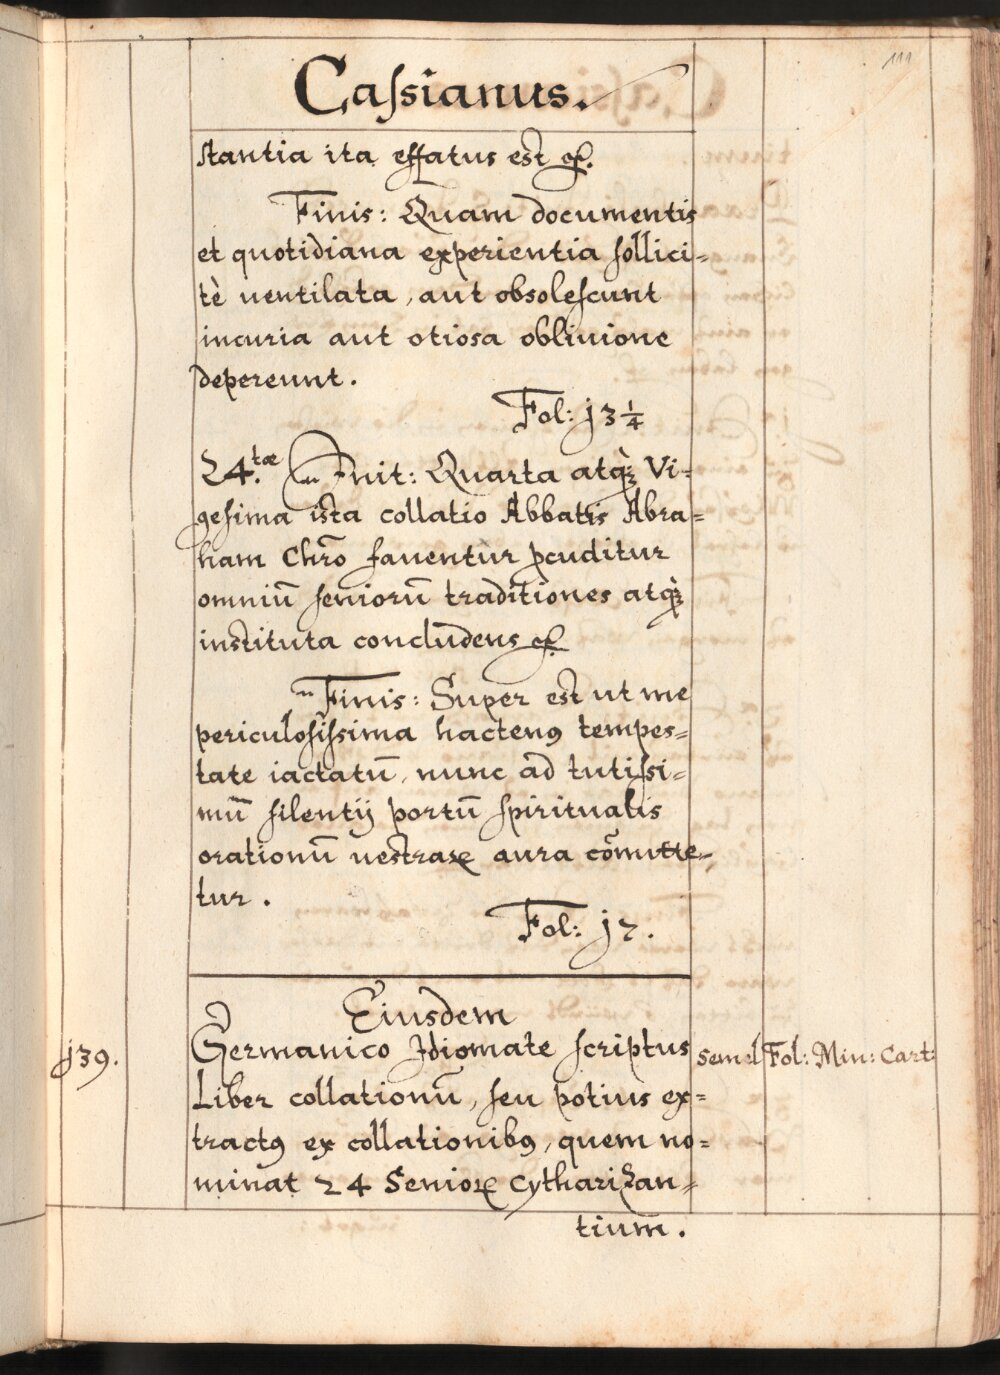 111
Cassianus.
stantia ita effatus est &c.
Finis: Quam documentis
et quotidiana experientia sollici=
tè uentilata, aut obsolescunt
incuria aut otiosa obliuione
depereunt.
Fol: j3 1/4
24.tæ Init: Quarta atq; Vi=
gesima ista collatio Abbatis Abra=
ham Chrō fauentur pcuditur
omniū seniorū traditiones atq;
instituta concludens &c.
Finis: Super est ut me
periculosissima hacteng tempes=
tate iactatū, nunc ad tutissi=
mū silentij portū spiritualis
orationū uestraꝝ aura cōmitte=
tur.
Fol: j7.
Eiusdem
j39.
Germanico Idiomate scriptus
Semel Fol: Min: Cart:
Liber collationū, seu potius ex=
tractꝰ ex collationibꝰ, quem no=
minat 24 Senioꝝ Cytharizan=
tium.